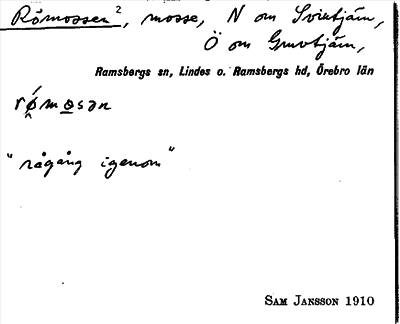 Römossen², mosse, N om Svintjärn,
Ö om Gruvtjärn,
Ramsbergs sn, Lindes o. Ramsbergs hd, Örebro län
rø̂́mo̲sən
"rågång igenom"
SAM JANSSON 1910